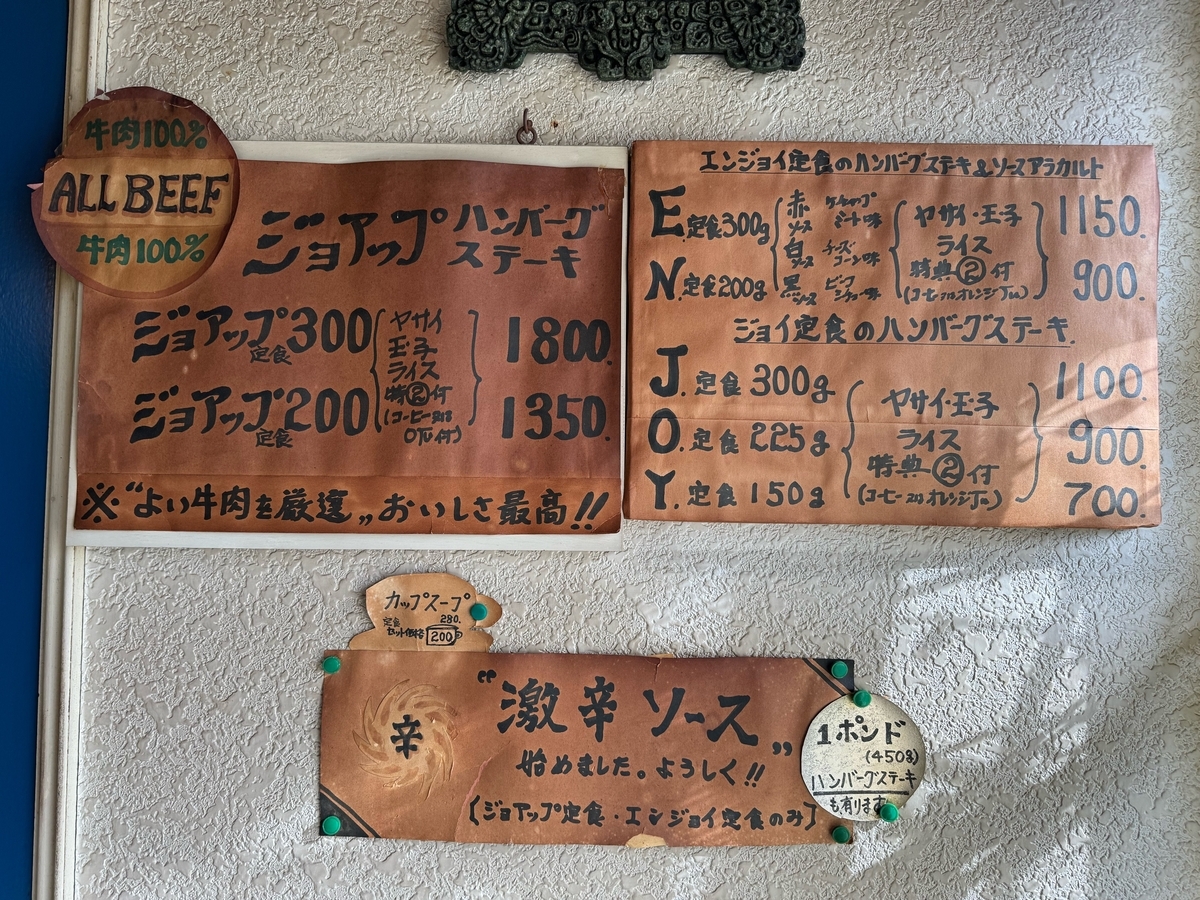 牛肉100%
ALL BEEF
牛肉100%
ジョアップ ハンバーグ
ステーキ
ジョアップ300
定食
ジョアップ200
定食
ヤサイ
玉子
ライス
特②付
(コーヒー又は
OJu付)
1800.
1350.
※“よい牛肉を厳選„おいしさ最高!!
エンジョイ定食のハンバーグステーキ&ソースアラカルト
E.定食300g
N.定食200g
赤ソース ケチャップ
ミート味
白ソース チーズ
コーン味
黒ソース ビーフ
シチュー味
ヤサイ・王子
ライス
特典②付
(コーヒー又はオレンジJu)
1150.
900.
ジョイ定食のハンバーグステーキ.
J.定食300g
O.定食225g
Y.定食150g
ヤサイ・王子
ライス
特典②付
(コーヒー又はオレンジJu)
1100.
900.
700.
カップスープ
280.
定食
セット価格 200
辛
“激辛ソース„
始めました。よろしく!!
(ジョアップ定食・エンジョイ定食のみ)
1ポンド
(450g)
ハンバーグステーキ
も有ります